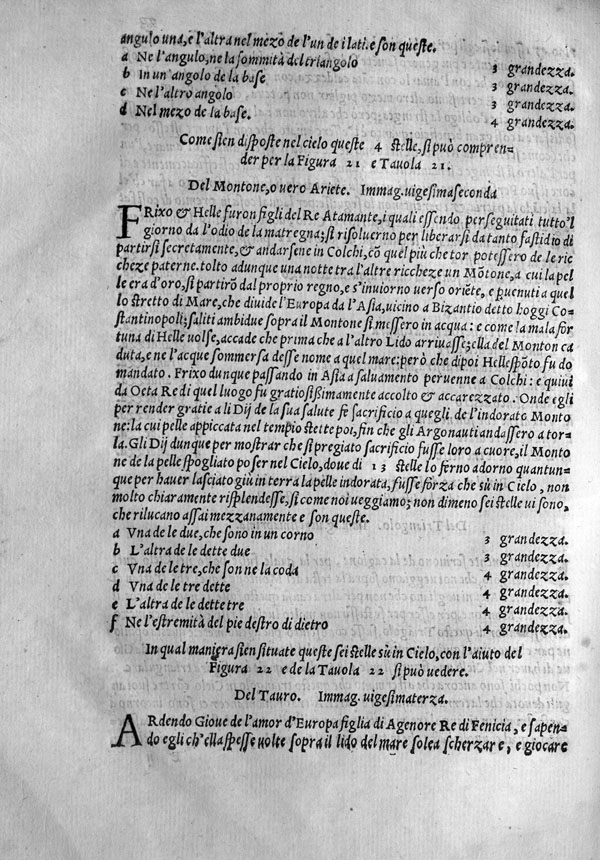 angulo una, e l'altra nel mezo de l'un de i lati. e son queste.
a Ne l'angulo, ne la sommità del triangolo 3 grandezza.
b In un'angolo de la base 3 grandezza.
c Ne l'altro angolo 3 grandezza.
d Nel mezo de la base. 4 grandezza.
Come sien disposte nel cielo queste 4 stelle, si può compren-
der per la Figura 21 e Tauola 21.
Del Montone, o vero Ariete. Immag. uigesimaseconda
FRixo & Helle furon figli del Re Atamante, i quali essendo perseguitati tutto'l
giorno da l'odio de la matregna; si risoluerno per liberarsi da tanto fastidio di
partirsi secretamente, & andarsene in Colchi, cō quel più che tor potessero de le ric
cheze paterne. tolto adunque una notte tra l'altre riccheze un Mōtone, a cui la pel
le era d'oro, si partirō dal proprio regno, e s'inuiorno uerso oriēte, e puenuti a quel
lo stretto di Mare, che diuide l'Europa da l'Asia, uicino a Bizantio detto hoggi Co-
stantinopoli; saliti ambidue sopra il Montone si messero in acqua: e come la mala for
tuna di Helle uolse, accade che prima che a l'altro Lido arriuasse; ella del Monton ca
duta, e ne l'acque sommersa desse nome a quel mare: però che dipoi Hellespōto fu do
mandato. Frixo dunque passando in Asia a saluamento peruenne a Colchi: e quiui
da Oeta Re di quel luogo fu gratiosissimamente accolto & accarezzato. Onde egli
per render gratie a li Dij de la sua salute fè sacrificio a quegli de l'indorato Monto
ne: la cui pelle appiccata nel tempio stette poi, fin che gli Argonauti andassero a tor-
la. Gli Dij dunque per mostrar che si pregiato sacrificio fusse loro a cuore, il Monto
ne de la pelle spogliato poser nel Cielo, doue di 13 stelle lo ferno adorno quantun-
que per hauer lasciato giù in terra la pelle indorata, fusse forza che sù in Cielo, non
molto chiaramente risplendesse, si come noi ueggiamo; non dimeno sei stelle ui sono,
che rilucano assai mezzanamente e son queste.
a Vna de le due, che sono in un corno 3 grandezza.
b L'altra de le dette due 3 grandezza.
c Vna de le tre, che son ne la coda 4 grandezza.
d Vna de le tre dette 4 grandezza.
e L'altra de le dette tre 4 grandezza.
f Ne l'estremità del pie destro di dietro 4 grandezza.
In qual maniera sien situate queste sei stelle sù in Cielo, con l'aiuto del
Figura 22 e de la Tauola 22 si può uedere.
Del Tauro. Immag. uigesimaterza.
ARdendo Gioue de l'amor d'Europa figlia di Agenore Re di Fenicia, e sapen-
do egli ch'ella spesse uolte sopra il lido del mare solea scherzare, e giocare